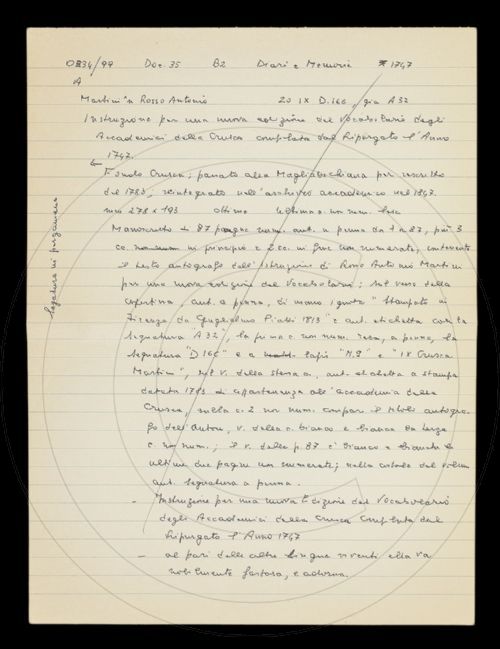 0234/99 Doc. 35 B2 Diari e Memorie 1747
A
Martini Rosso Antonio 20 IX D.166 già A 32
Instruzione per una nuova edizione del Vocabolario degli
Accademici della Crusca compilata dal Ripurgato l'Anno
1747.
Fondo Crusca; passato alla Magliabechiana per rescritto
del 1783, reintegrato nell'archivio accademico nel 1847.
mm 278 x 193 ottimo
Manoscritto 87 pagine num. aut. a penna da 1 a 87, più 3
cc. in principio e 2 cc. in fine non numerate, contenente
il testo autografo dell'Istruzione di Rosso Antonio Martini
per una nuova edizione del Vocabolario; sul verso della
copertina, aut. a penna, di mano ignota "Stampato in
Firenze da Guglielmo Piatti 1813" e ant. etichetta con la
segnatura "A 32", la prima c. non num. reca, a penna, la
segnatura "D 166" e a lapis "N.9" e "IX Crusca
Martini", sul v. della stessa c. ant. etichetta a stampa
datata 1783 di appartenenza all'Accademia della
Crusca, sulla c. 2 non num. compare il titolo autogra-
fo dell'Autore, v. della c. bianco e bianca la terza
c. non num.; il v. della p. 87 è bianco e bianche le
ultime due pagine non numerate; nella costola del volume
ant. segnatura a penna.
- Instruzione per una nuova Edizione del Vocabolario
degli Accademici della Crusca Compilata dal
Ripurgato l'Anno 1747
- al pari delle altre lingue viventi ella va
nobilmente fastosa, e adorna.
legatura in pergamena